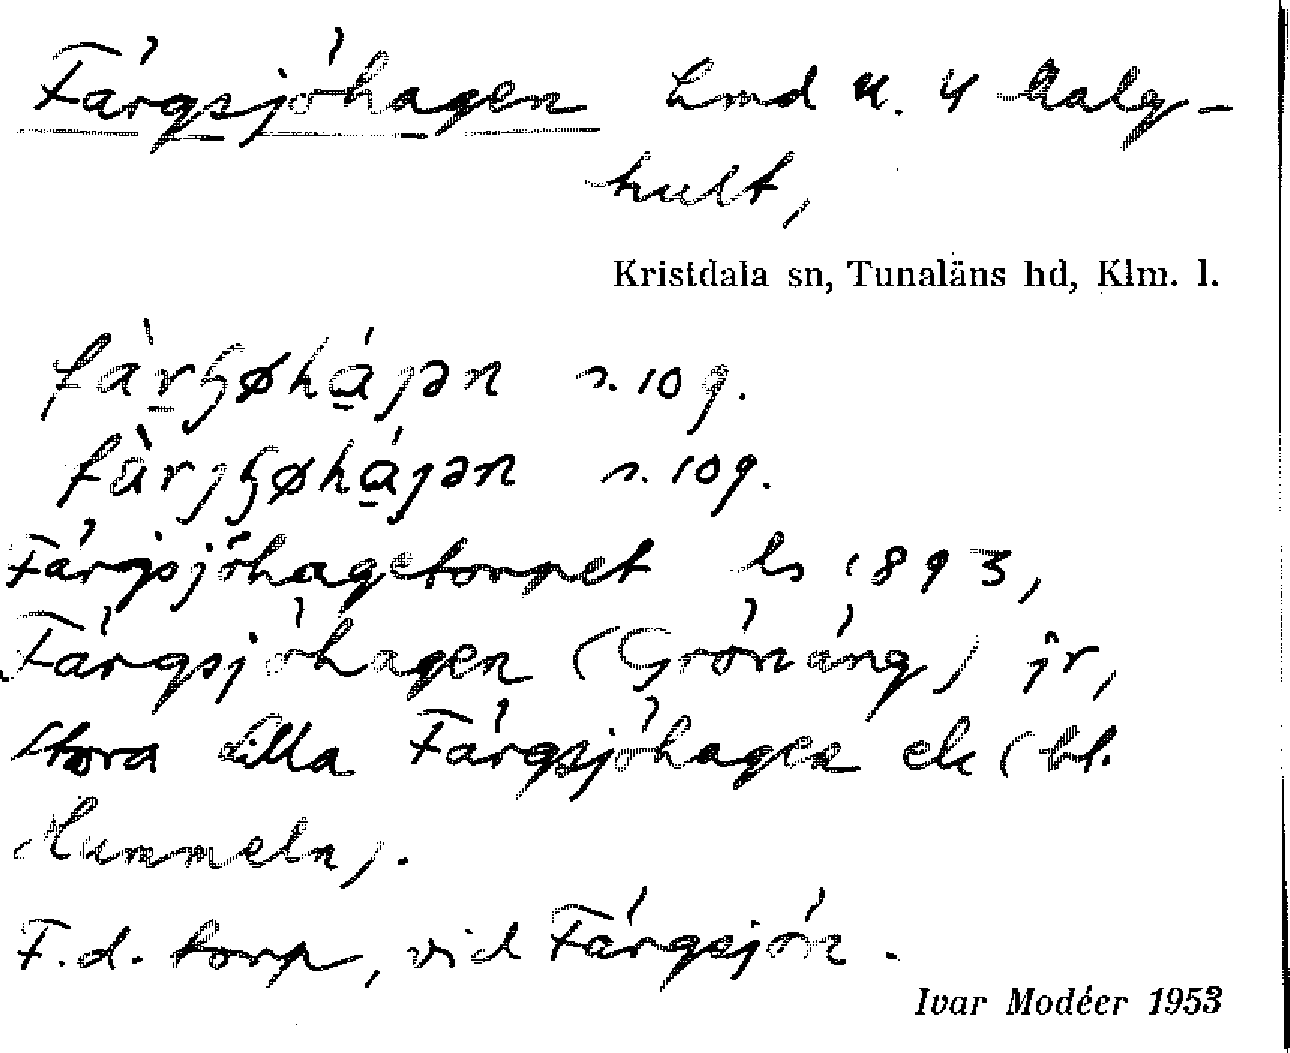 Färgsjöhagen Lmd u. 4 Aalg-
hult,
Kristdala sn, Tunaläns hd, Klm. l.
s. 109.
s. 109.
Färgsjöhagetorpet ls 1893,
Färgsjöhagen (Grönäng) jr,
Stora Lilla Färgsjöhagen ek (bl.
Hummeln).
F.d. torp, vid Färgsjön.
Ivar Modéer 1953